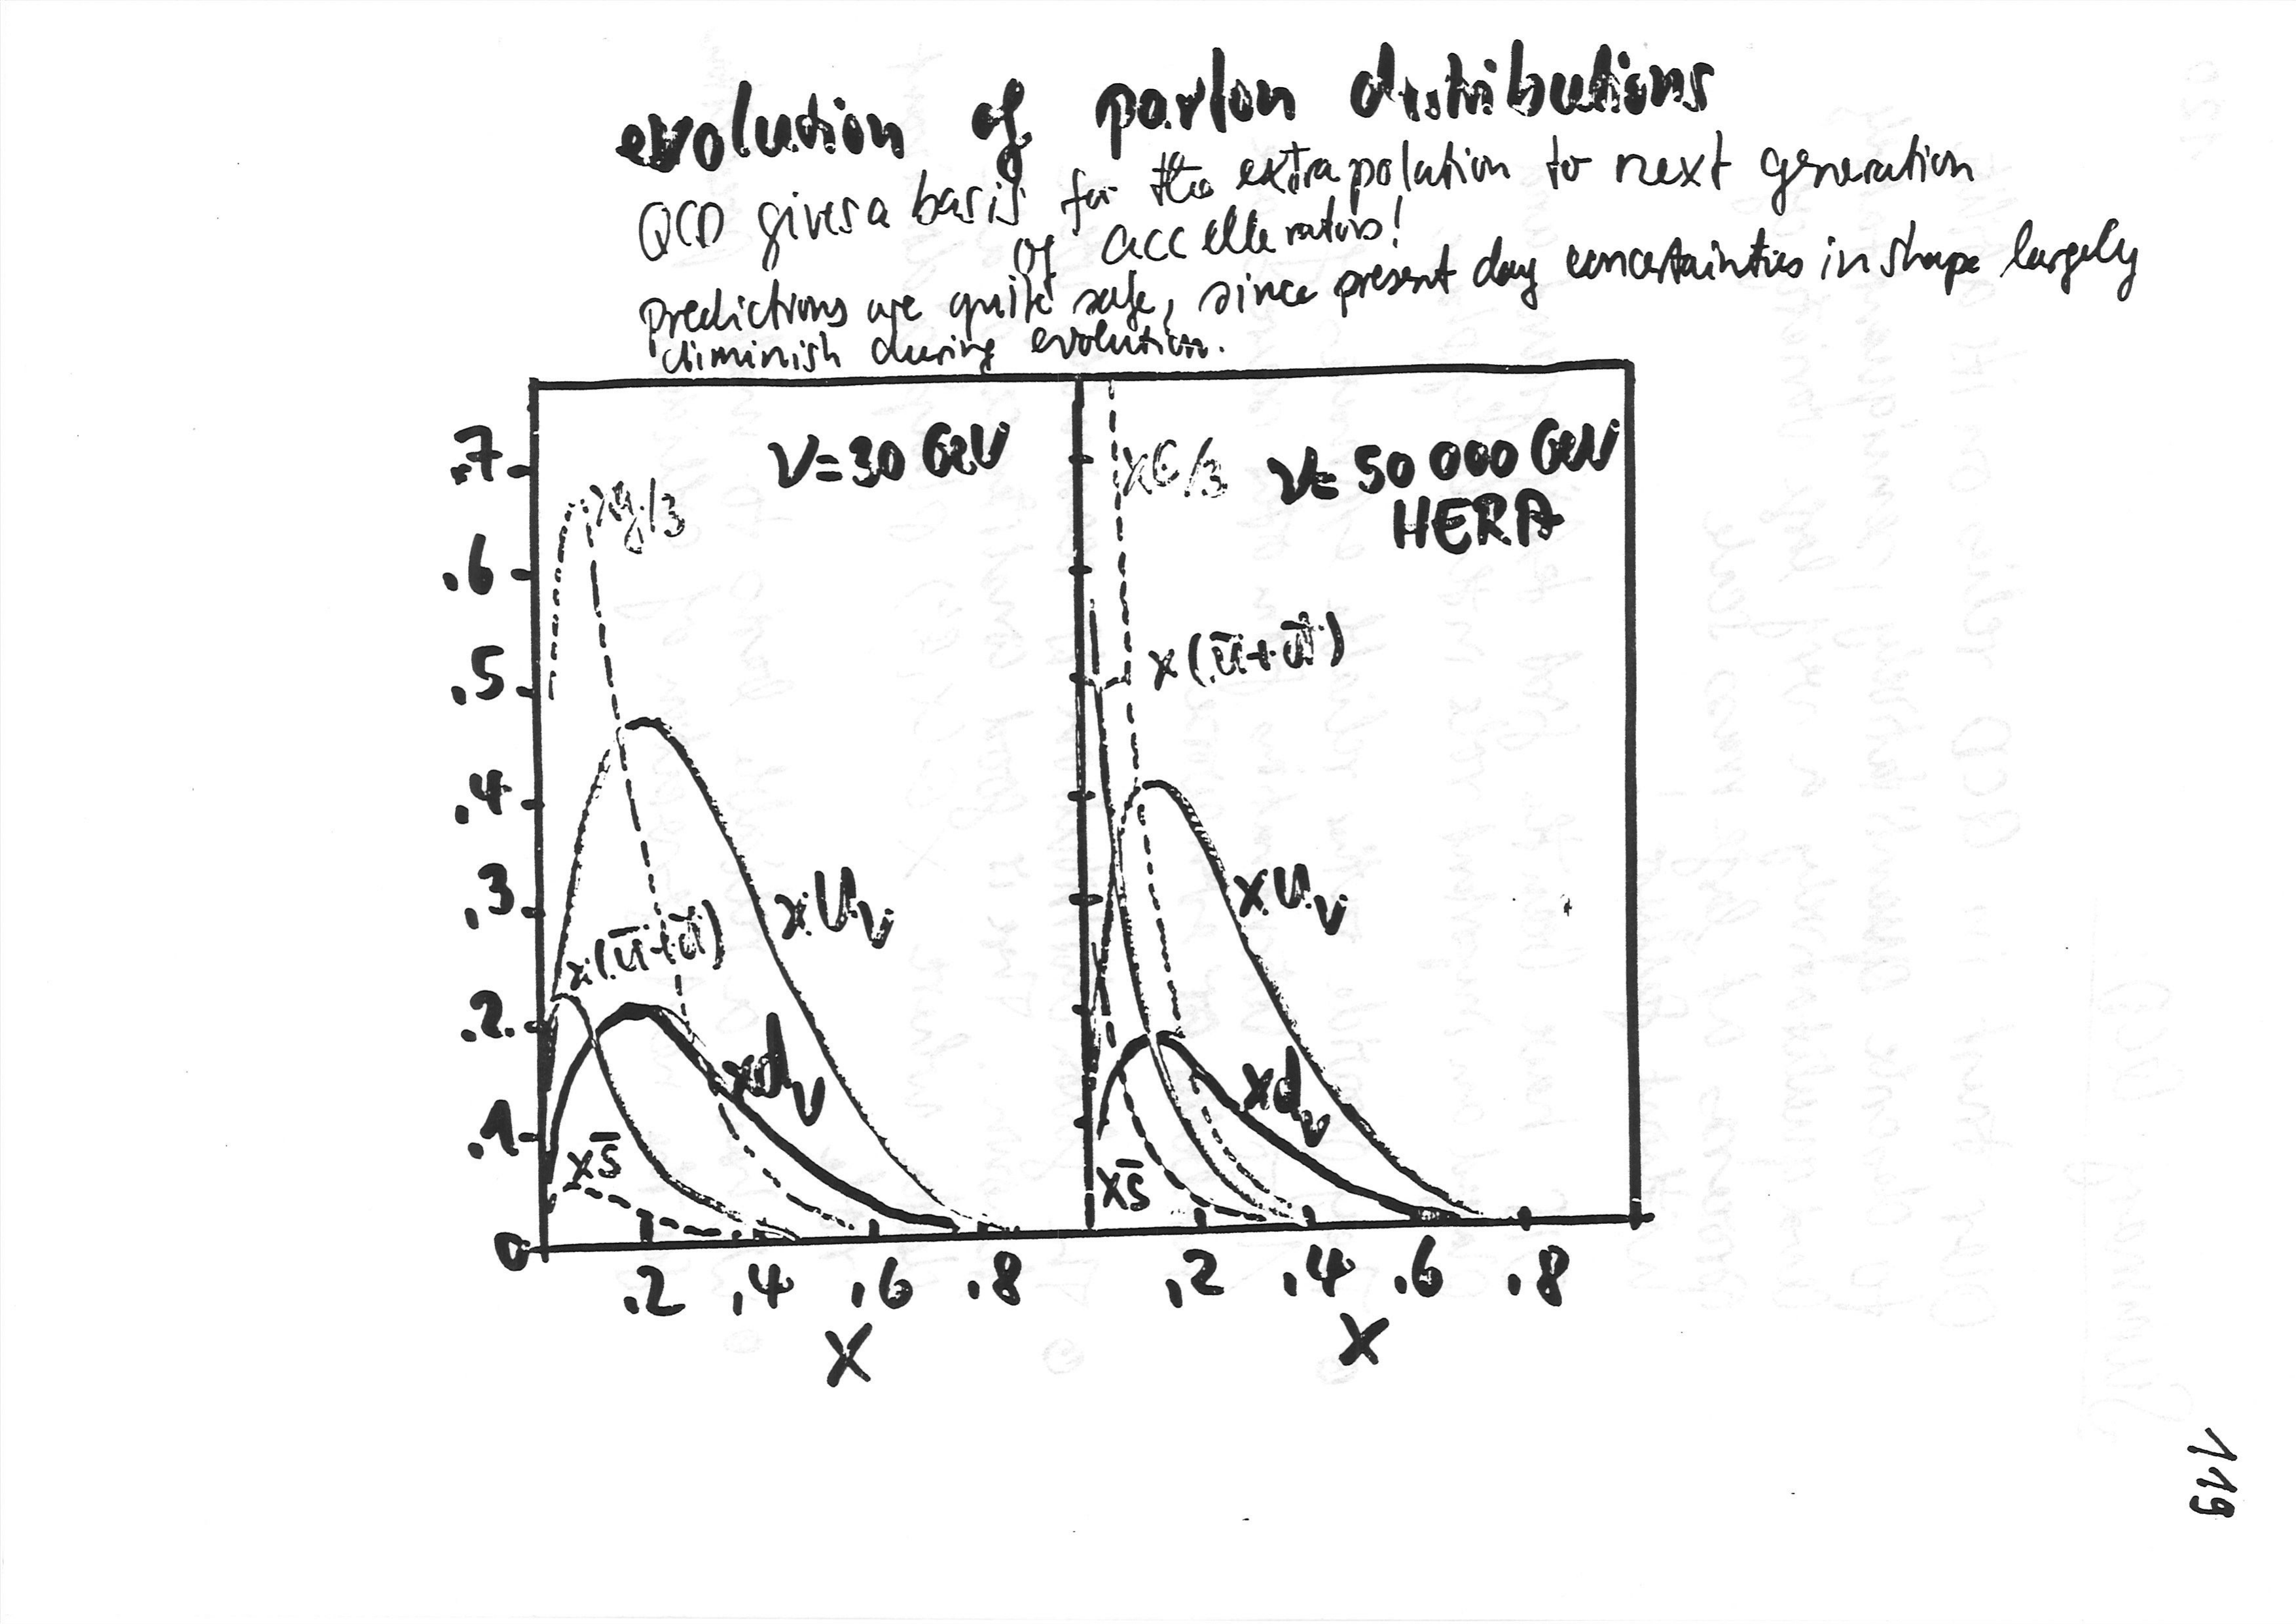 evolution of parton distributions
QCD gives a basis for the extrapolation to next generation
of accellerators!
predictions are quite safe, since present day uncertainties in shape largely
diminish during evolution.
.7
.6
.5
.4
.3
.2
.1
0
ν=30 GeV
xg/3
x(ū+d̄)
xUv
xdv
xs̄
.2 .4 .6 .8
x
xG/3
ν= 50 000 GeV
HERA
x(ū+d̄)
xUv
xdv
xs̄
.2 .4 .6 .8
x
119